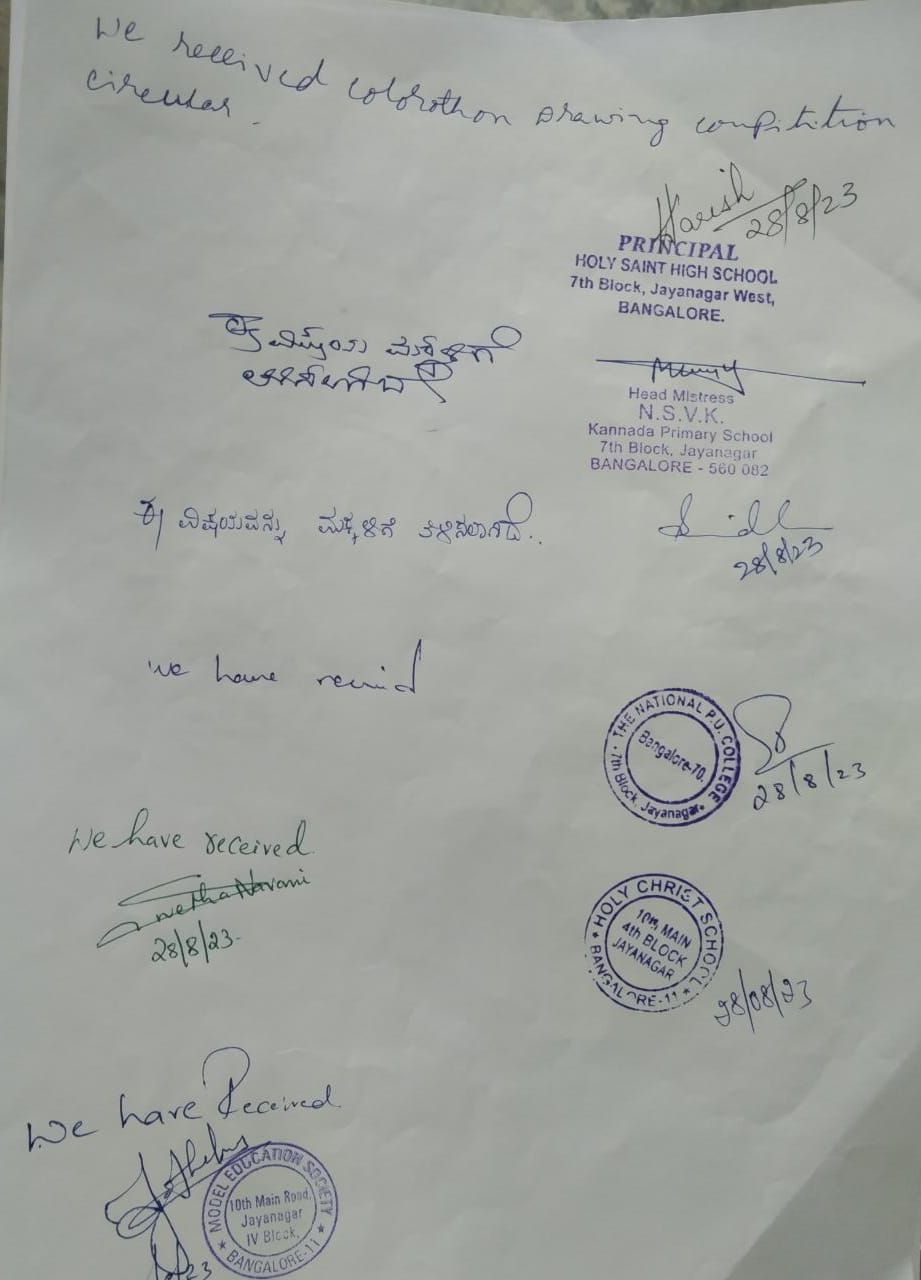 We received colorothon Drawing compitition
circular.
Harish
28/8/23
PRINCIPAL
HOLY SAINT HIGH SCHOOL
7th Block, Jayanagar West,
BANGALORE.
ಈ ವಿಷಯ ಮಕ್ಕಳಿಗೆ
Head Mistress
N.S.V.K.
Kannada Primary School
7th Block, Jayanagar
BANGALORE - 560 082
ಈ ವಿಷಯವನ್ನು ಮಕ್ಕಳಿಗೆ ತಿಳಿಸಲಾಗಿದೆ..
28/8/23
we have
THE NATIONAL P.U. COLLEGE
Bangalore-70.
7th Block, Jayanagar
28/8/23
We have received
28/8/23
HOLY CHRIST SCHOOL
10th MAIN
4th BLOCK
JAYANAGAR
BANGALORE-11
28/08/23
We have Received
MODEL EDUCATION SOCIETY
10th Main Road,
Jayanagar
IV Block,
BANGALORE-11